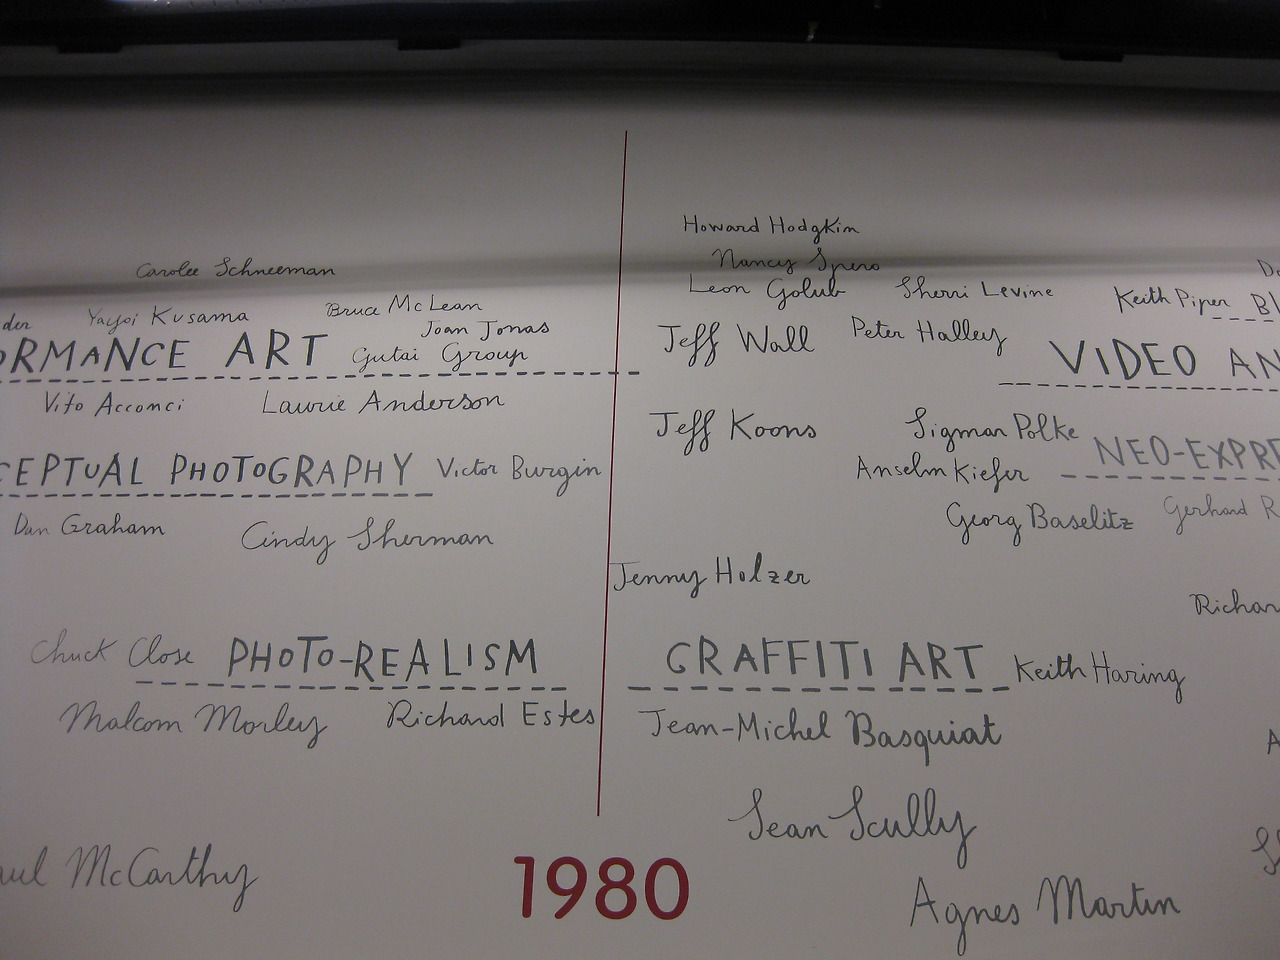 Howard Hodgkin
Nancy Spero
Carolee Schneeman
Leon Golub
Sherri Levine
Keith Piper
Yayoi Kusama
Bruce McLean
Joan Jonas
Jeff Wall
Peter Halley
ORMANCE ART
Gutai Group
VIDEO AN
Vito Acconci
Laurie Anderson
Jeff Koons
Sigmar Polke
CEPTUAL PHOTOGRAPHY
Victor Burgin
Anselm Kiefer
NEO-EXPRE
Dan Graham
Cindy Sherman
Georg Baselitz
Gerhard R
Jenny Holzer
Richar
Chuck Close
PHOTO-REALISM
GRAFFITI ART
Keith Haring
Malcom Morley
Richard Estes
Jean-Michel Basquiat
Sean Scully
aul McCarthy
1980
Agnes Martin